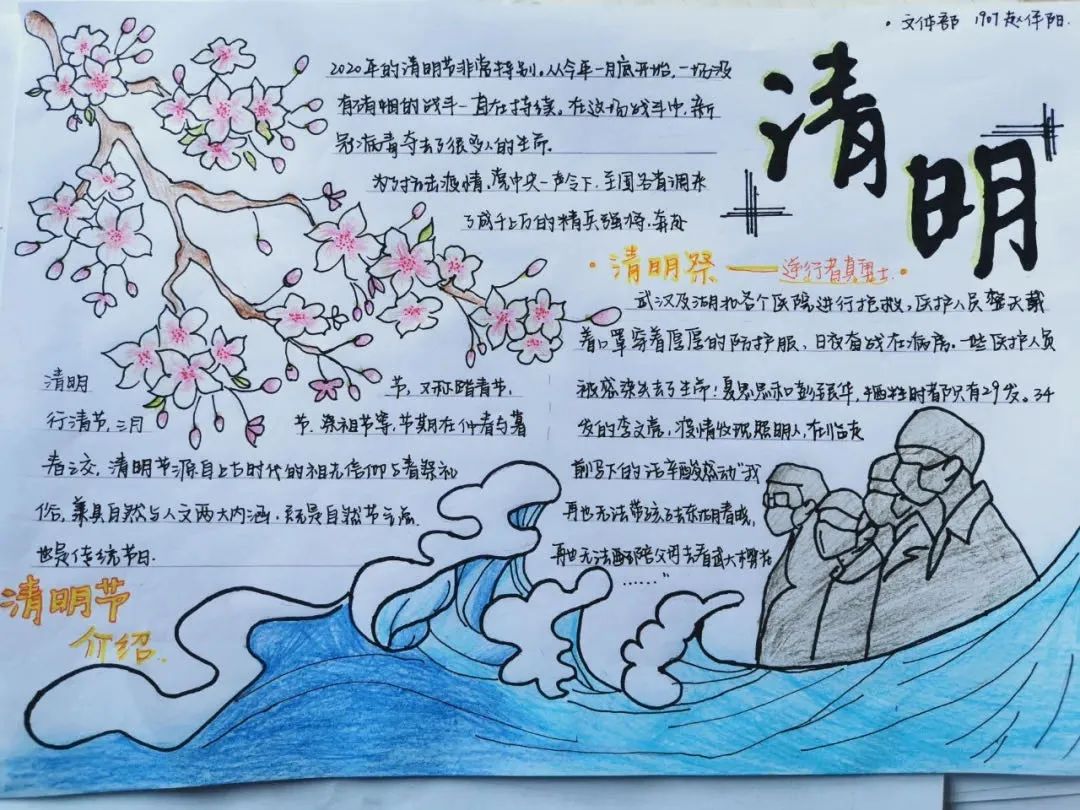 ·文体部 1907赵
清明
2020年的清明节非常特别。从今年一月底开始,一场没
有消烟的战斗一直在持续。在这场战斗中,新
冠病毒夺去了很多人的生命。
为了打击疫情,党中央一声令下,全国各省调来
了成千上万的精兵强将,奔赴
·清明祭——逆行者真勇士·
武汉及湖北各个医院进行抢救,医护人员整天戴
着口罩穿着厚厚的防护服,日夜奋战在病房,一些医护人员
被感染失去了生命!夏思思和彭银华,牺牲时都只有29岁。34
岁的李文亮,疫情吹哨人,在临
前写下的话辛酸感动"我
再也无法带孩子去东湖踏青,
再也无法陪父母去看武大樱花
……"
清明节,又称踏青节,
行清节、三月节、祭祖节等,节期在仲春与暮
春之交。清明节源自上古时代的祖先信仰与春祭礼
俗,兼具自然与人文两大内涵,既是自然节气点,
也是传统节日.
清明节
介绍.